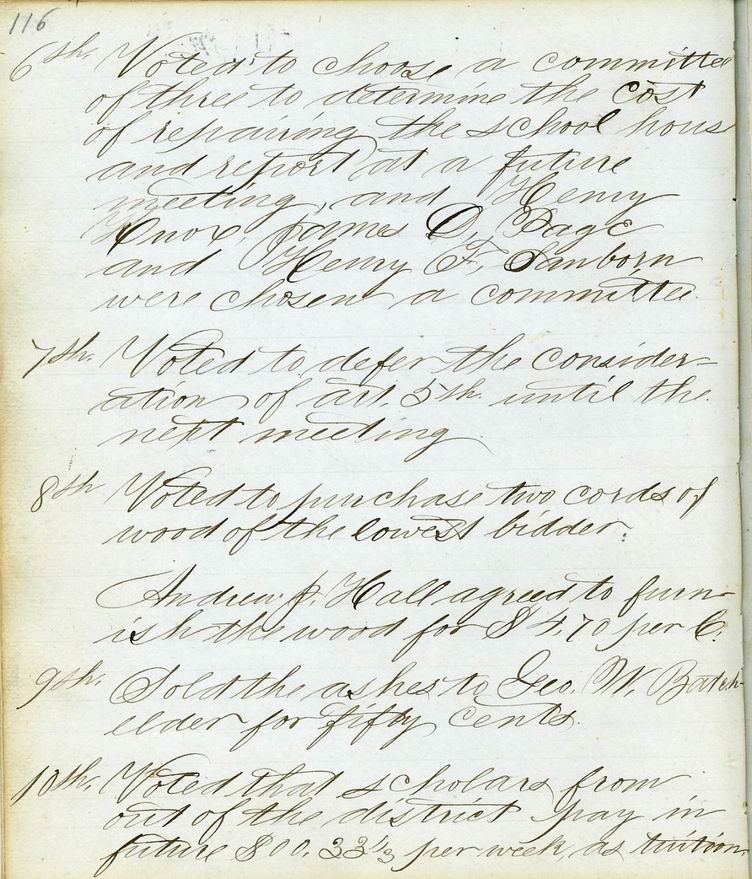 116
6th. Voted to choose a committee
of three to determine the cost
of repairing the school hous
and report at a future
meeting, and Henry
Knox, James D. Page
and Henry F. Sanborn
were chosen a committee.
7th. Voted to defer the consider-
ation of art. 5th. until the
next meeting.
8th Voted to purchase two cords of
wood of the lowest bidder.
Andrew J. Hall agreed to furn-
ish the wood for $4.70 per C.
9th. Sold the ashes to Geo. W. Batch-
elder for fifty cents.
10th. Voted that scholars from
out of the district pay in
future $00.33⅓ per week, as tuition